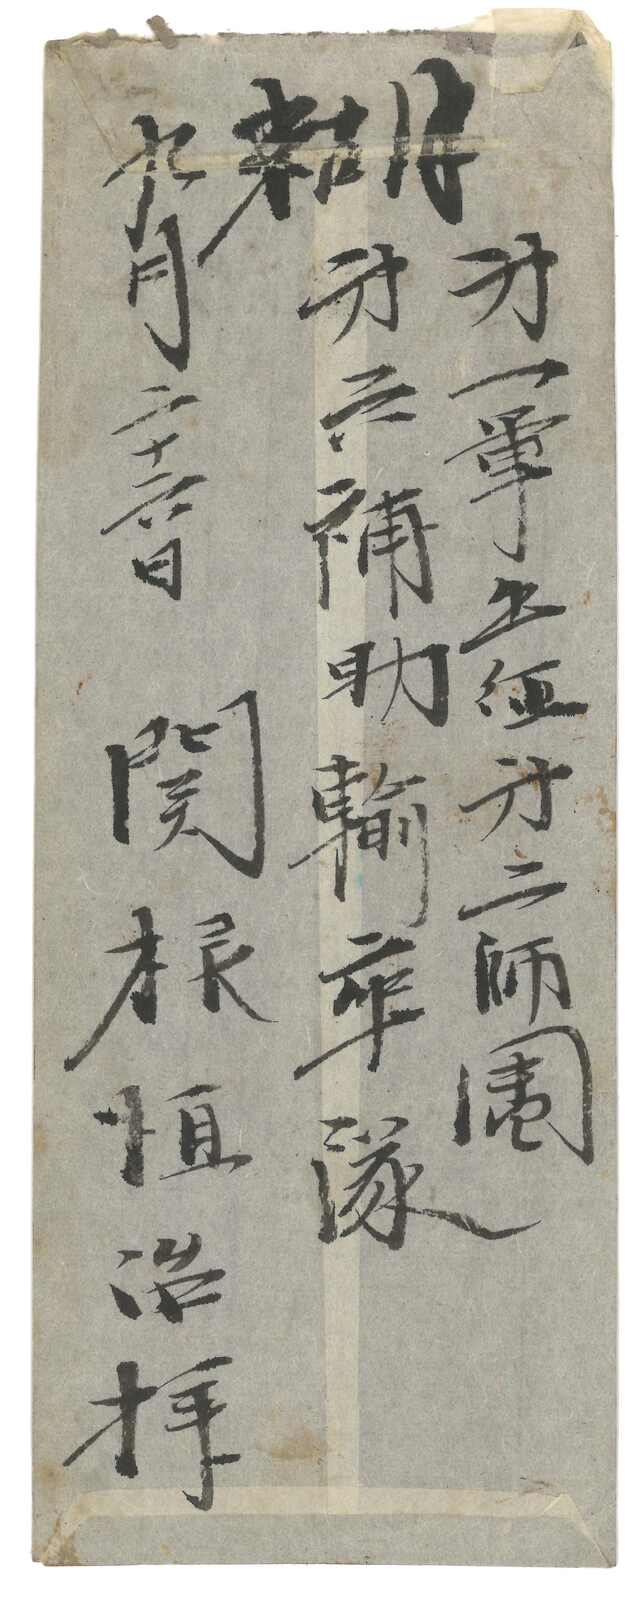 糊
第一軍出征第二師團
第六補助輸卒隊
九月二十六日
関根恒治拝